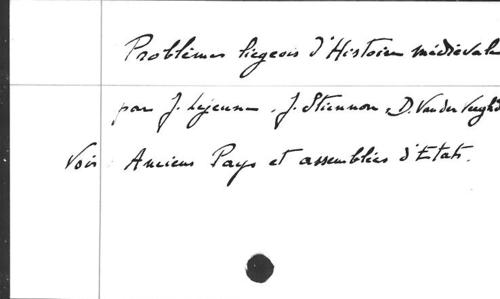 Problèmes liégeois d'Histoire médiévale
par J. Lejeune, J. Stiennon, D. Van der Veeghd
Voir Anciens Pays et assemblées d'Etats.